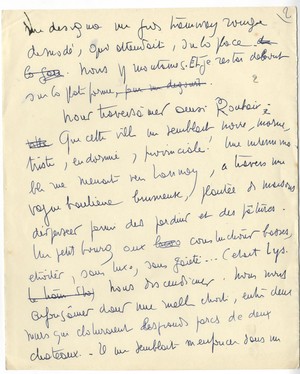 2
me désigna un gros tramway rouge
démodé, qui attendait, sur la place de
la gare. Nous y montâmes. Et je restai debout
sur la plate forme,
Nous traversâmes ainsi Roubaix
Que cette ville me semblait noire, morne,
triste, endormie, provinciale! Une interminable
rue menait vers Lannoy, à travers une
vague banlieue brumeuse, plantée de maisons
dispersées parmi des jardins et des pâtures.
Un petit bourg, aux constructions basses,
étroites, sans luxe, sans gaieté... C'était Lys.
Nous descendîmes. Nous nous
enfonçâmes dans une ruelle étroite, entre deux
murs qui clôturaient les grands parcs de deux
châteaux. Il me semblait m'enfoncer dans un